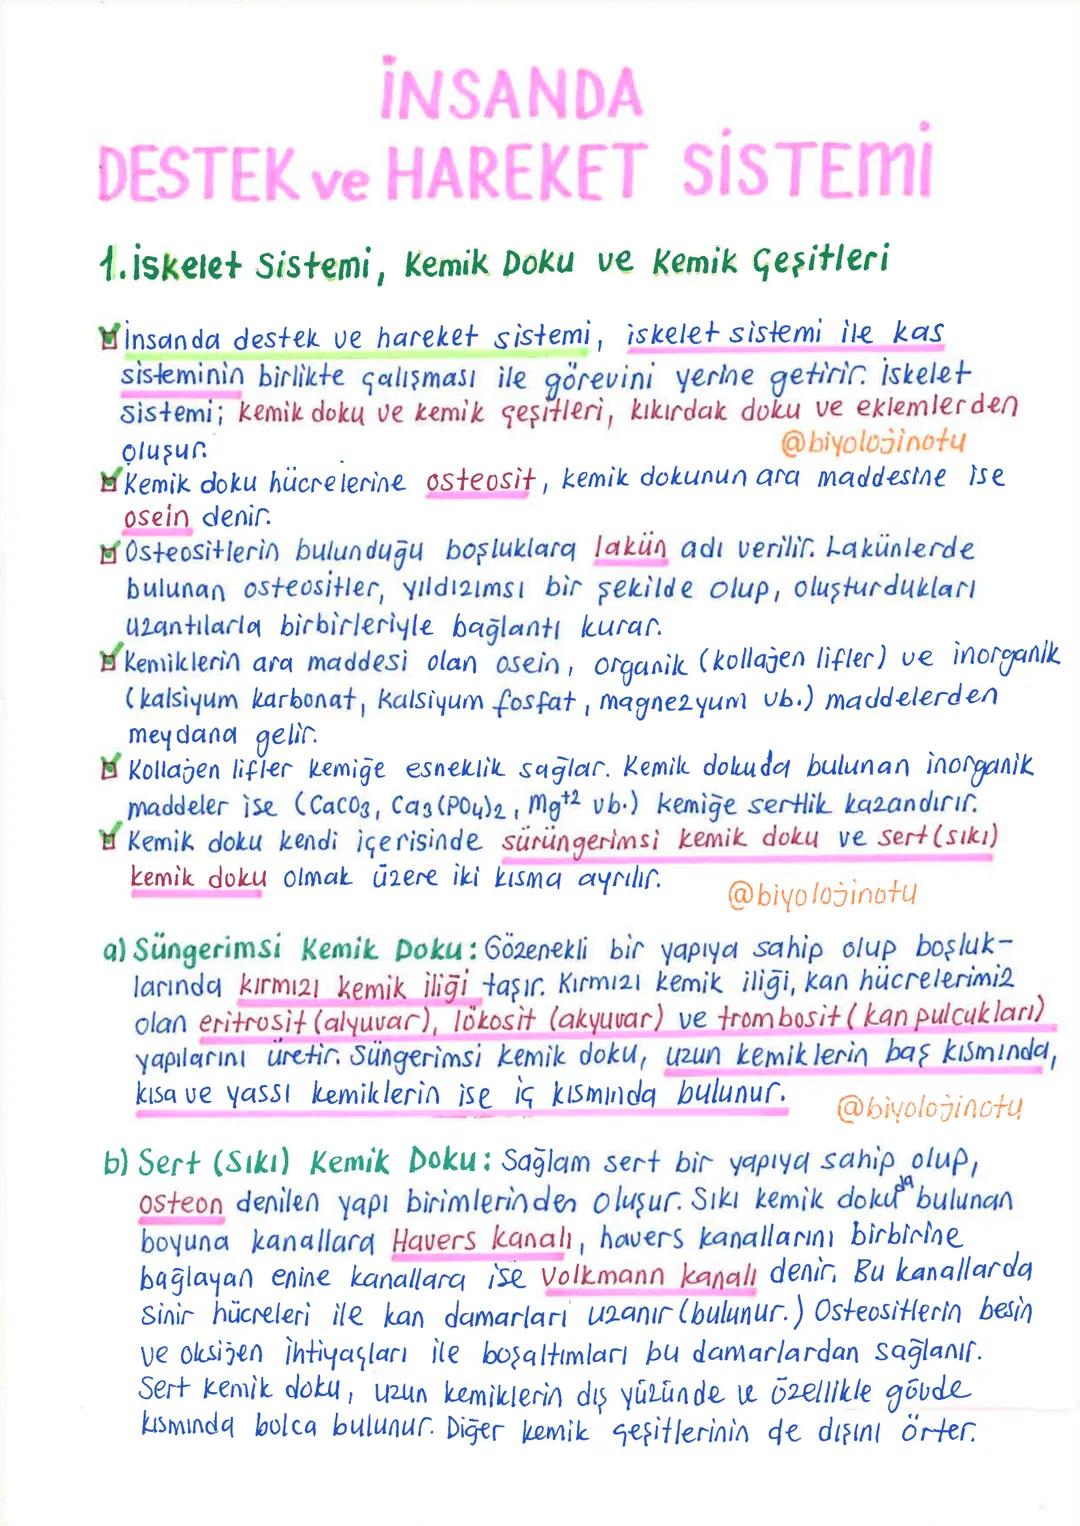 İNSANDA
DESTEK ve HAREKET SİSTEMİ
1. İskelet Sistemi, Kemik Doku ve Kemik Çeşitleri
İnsanda destek ve hareket sistemi, iskelet sistemi ile kas
sisteminin birlikte çalışması ile görevini yerine getirir. İskelet
sistemi; kemik doku ve kemik çeşitleri, kıkırdak doku ve eklemlerden
oluşur.
@biyolojinotu
Kemik doku hücrelerine osteosit, kemik dokunun ara maddesine ise
osein denir.
Osteositlerin bulunduğu boşluklara lakün adı verilir. Lakünlerde
bulunan osteositler, yıldızımsı bir şekilde olup, oluşturdukları
uzantılarla birbirleriyle bağlantı kurar.
Kemiklerin ara maddesi olan osein, organik (kollajen lifler) ve inorganik
(kalsiyum karbonat, kalsiyum fosfat, magnezyum vb.) maddelerden
meydana gelir.
Kollajen lifler kemiğe esneklik sağlar. Kemik dokuda bulunan inorganik
maddeler ise (CaCO3, Ca3(PO4)2, Mg+2 vb.) kemiğe sertlik kazandırır.
Kemik doku kendi içerisinde sürüngerimsi kemik doku ve sert (sıkı)
kemik doku olmak üzere iki kısma ayrılır.
@biyolojinotu
a) Süngerimsi Kemik Doku: Gözenekli bir yapıya sahip olup boşluk-
larında kırmızı kemik iliği taşır. Kırmızı kemik iliği, kan hücrelerimiz
olan eritrosit (alyuvar), lökosit (akyuvar) ve trombosit (kan pulcukları)
yapılarını üretir. Süngerimsi kemik doku, uzun kemiklerin baş kısmında,
kısa ve yassı kemiklerin ise iç kısmında bulunur.
@biyolojinotu
b) Sert (Sıkı) Kemik Doku: Sağlam sert bir yapıya sahip olup,
osteon denilen yapı birimlerinden oluşur. Sıkı kemik dokuda bulunan
boyuna kanallara Havers kanalı, havers kanallarını birbirine
bağlayan enine kanallara ise Volkmann kanalı denir. Bu kanallarda
sinir hücreleri ile kan damarlari uzanır (bulunur.) Osteositlerin besin
ve oksijen ihtiyaçları ile boşaltımları bu damarlardan sağlanır.
Sert kemik doku, uzun kemiklerin dış yüzünde ve özellikle gövde
kısmında bolca bulunur. Diğer kemik çeşitlerinin de dışını örter.